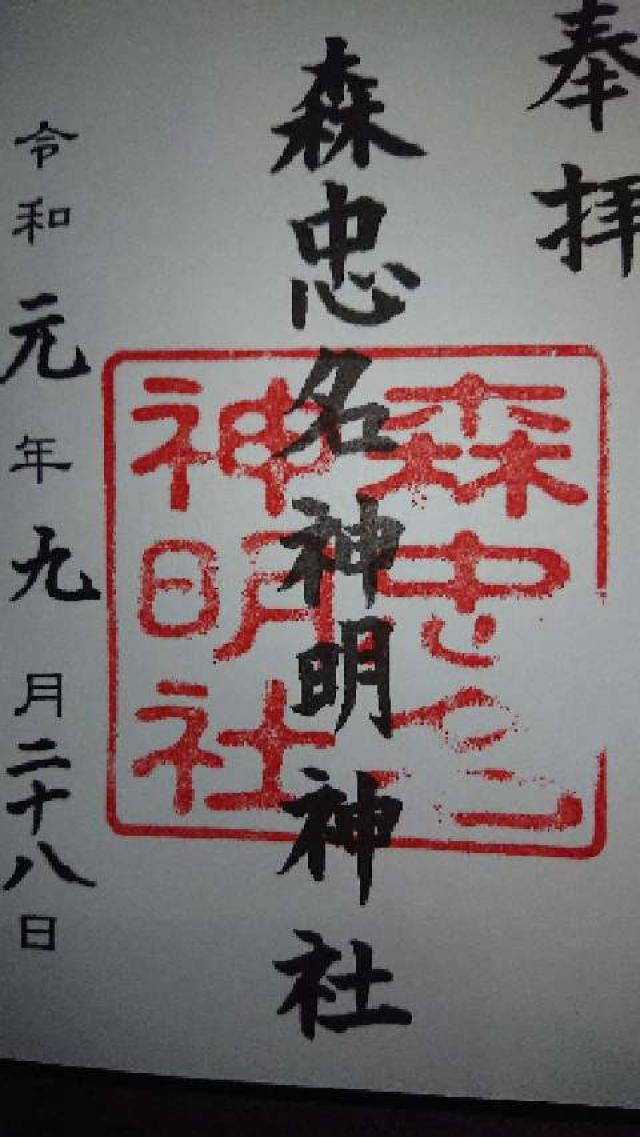 奉拝
森忠名神明神社
森忠名
神明社
令和元年九月二十八日